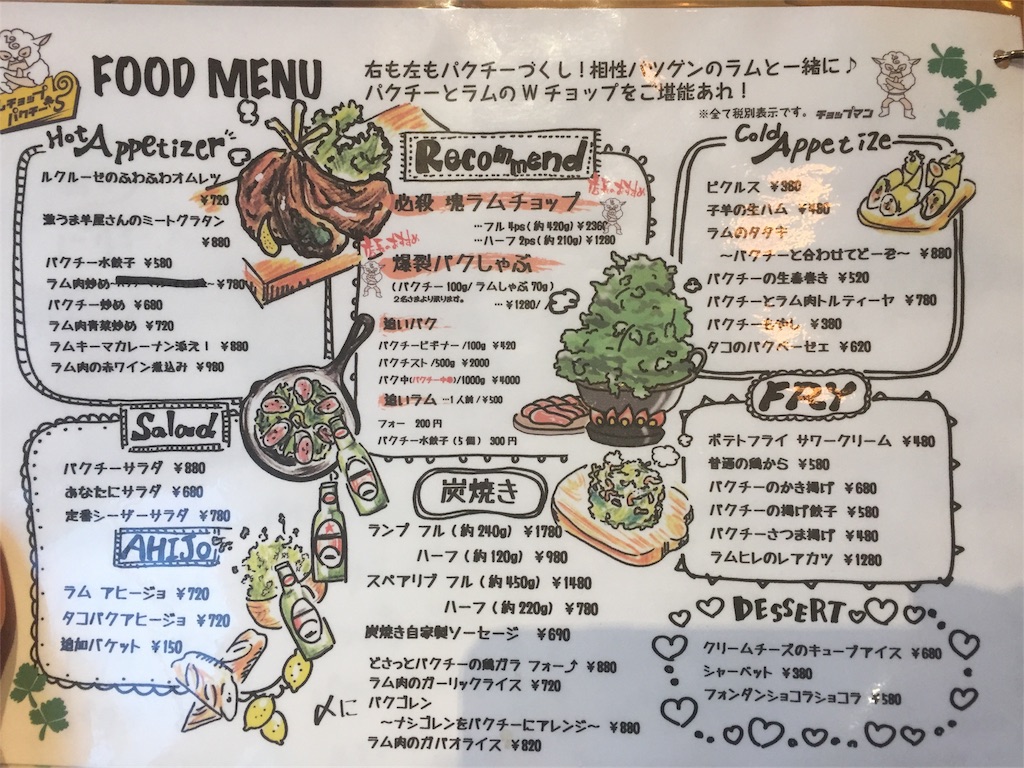 FOOD MENU
右も左もパクチーづくし！相性バツグンのラムと一緒に♪
パクチーとラムのWチョップをご堪能あれ！
※全て税別表示です。 チョップマン
ムチョップ
パクチーS
Hot Appetizer
ルクルーゼのふわふわオムレツ
¥720
激うま羊屋さんのミートグラタン
¥880
パクチー水餃子 ¥580
ラム肉炒め ～¥780
パクチー炒め ¥680
ラム肉青菜炒め ¥720
ラムキーマカレーナン添え！ ¥880
ラム肉の赤ワイン煮込み ¥980
Salad
パクチーサラダ ¥880
あなたにサラダ ¥680
定番シーザーサラダ ¥780
AHIJO
ラム アヒージョ ¥720
タコパクアヒージョ ¥720
追加バケット ¥150
Recommend
必殺 塊ラムチョップ
…フル 4ps(約420g) ¥2360
…ハーフ 2ps(約210g) ¥1280
爆裂パクしゃぶ
(パクチー100g/ラムしゃぶ70g)
2名さまより承ります。 …¥1280/
追いパク
パクチービギナー/100g ¥420
パクチスト/500g ¥2000
パク中(パクチー中毒)/1000g ¥4000
追いラム …1人前/¥500
フォー 200円
パクチー水餃子(5個) 300円
炭焼き
ランプ フル(約240g) ¥1780
ハーフ(約120g) ¥980
スペアリブ フル(約450g) ¥1480
ハーフ(約220g) ¥780
炭焼き自家製ソーセージ ¥690
〆に
どさっとパクチーの鶏ガラ フォー⤴ ¥880
ラム肉のガーリックライス ¥720
パクゴレン
～ナシゴレンをパクチーにアレンジ～ ¥880
ラム肉のガパオライス ¥820
Cold Appetize
ピクルス ¥380
子羊の生ハム ¥480
ラムのタタキ
～パクチーと合わせてどーぞ～ ¥880
パクチーの生春巻き ¥520
パクチーとラム肉トルティーヤ ¥780
パクチーもやし ¥380
タコのパクペーゼェ ¥620
FRY
ポテトフライ サワークリーム ¥480
普通の鶏から ¥580
パクチーのかき揚げ ¥680
パクチーの揚げ餃子 ¥580
パクチーさつま揚げ ¥480
ラムヒレのレアカツ ¥1280
DESSERT
クリームチーズのキューブアイス ¥680
シャーベット ¥380
フォンダンショコラショコラ ¥580